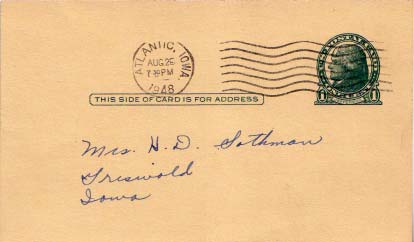 ATLANTIC, IOWA
AUG 26
PM
1948
THIS SIDE OF CARD IS FOR ADDRESS
Mrs. H. D. Sothman
Griswold
Iowa